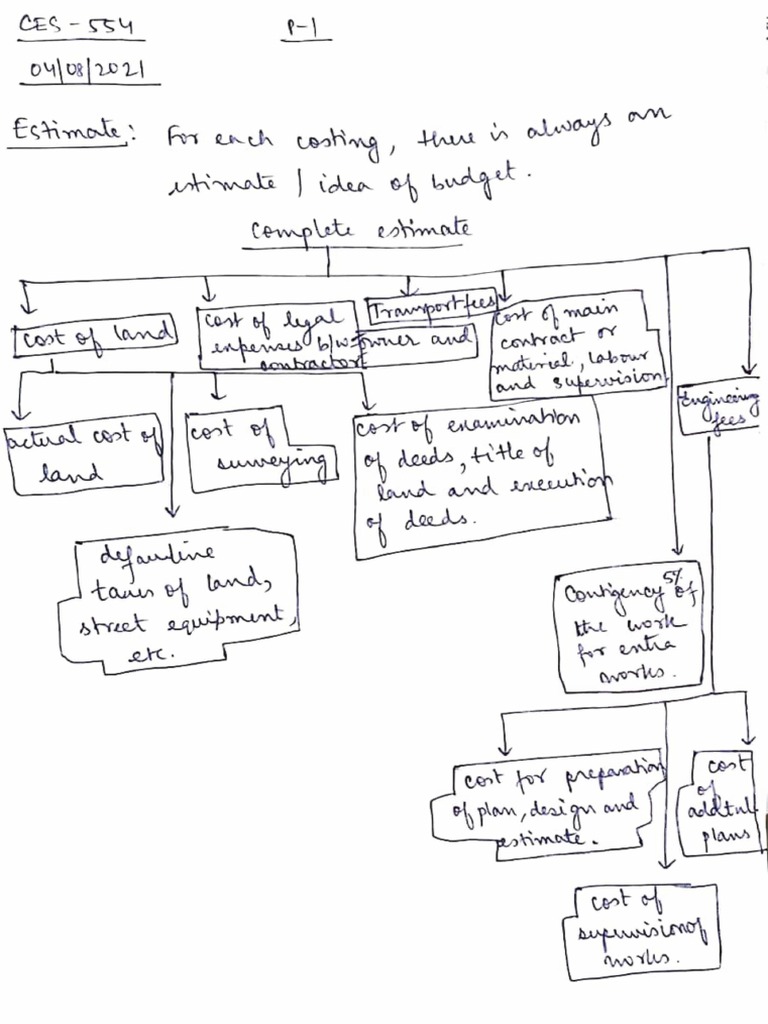 CES-554
P-1
04/08/2021
Estimate: For each costing, there is always an
estimate / idea of budget.
complete estimate
cost of land
cost of legal
expenses b/w owner and
contractor
Transport fees
cost of main
contract or
material, labour
and supervision
Engineering
fees
actual cost of
land
cost of
surveying
cost of examination
of deeds, title of
land and execution
of deeds.
taxes of land,
street equipment,
etc.
Contigency 5% of
the work
for extra
works.
cost for preparation
of plan, design and
estimate.
cost
of
plans
cost of
supervision of
works.